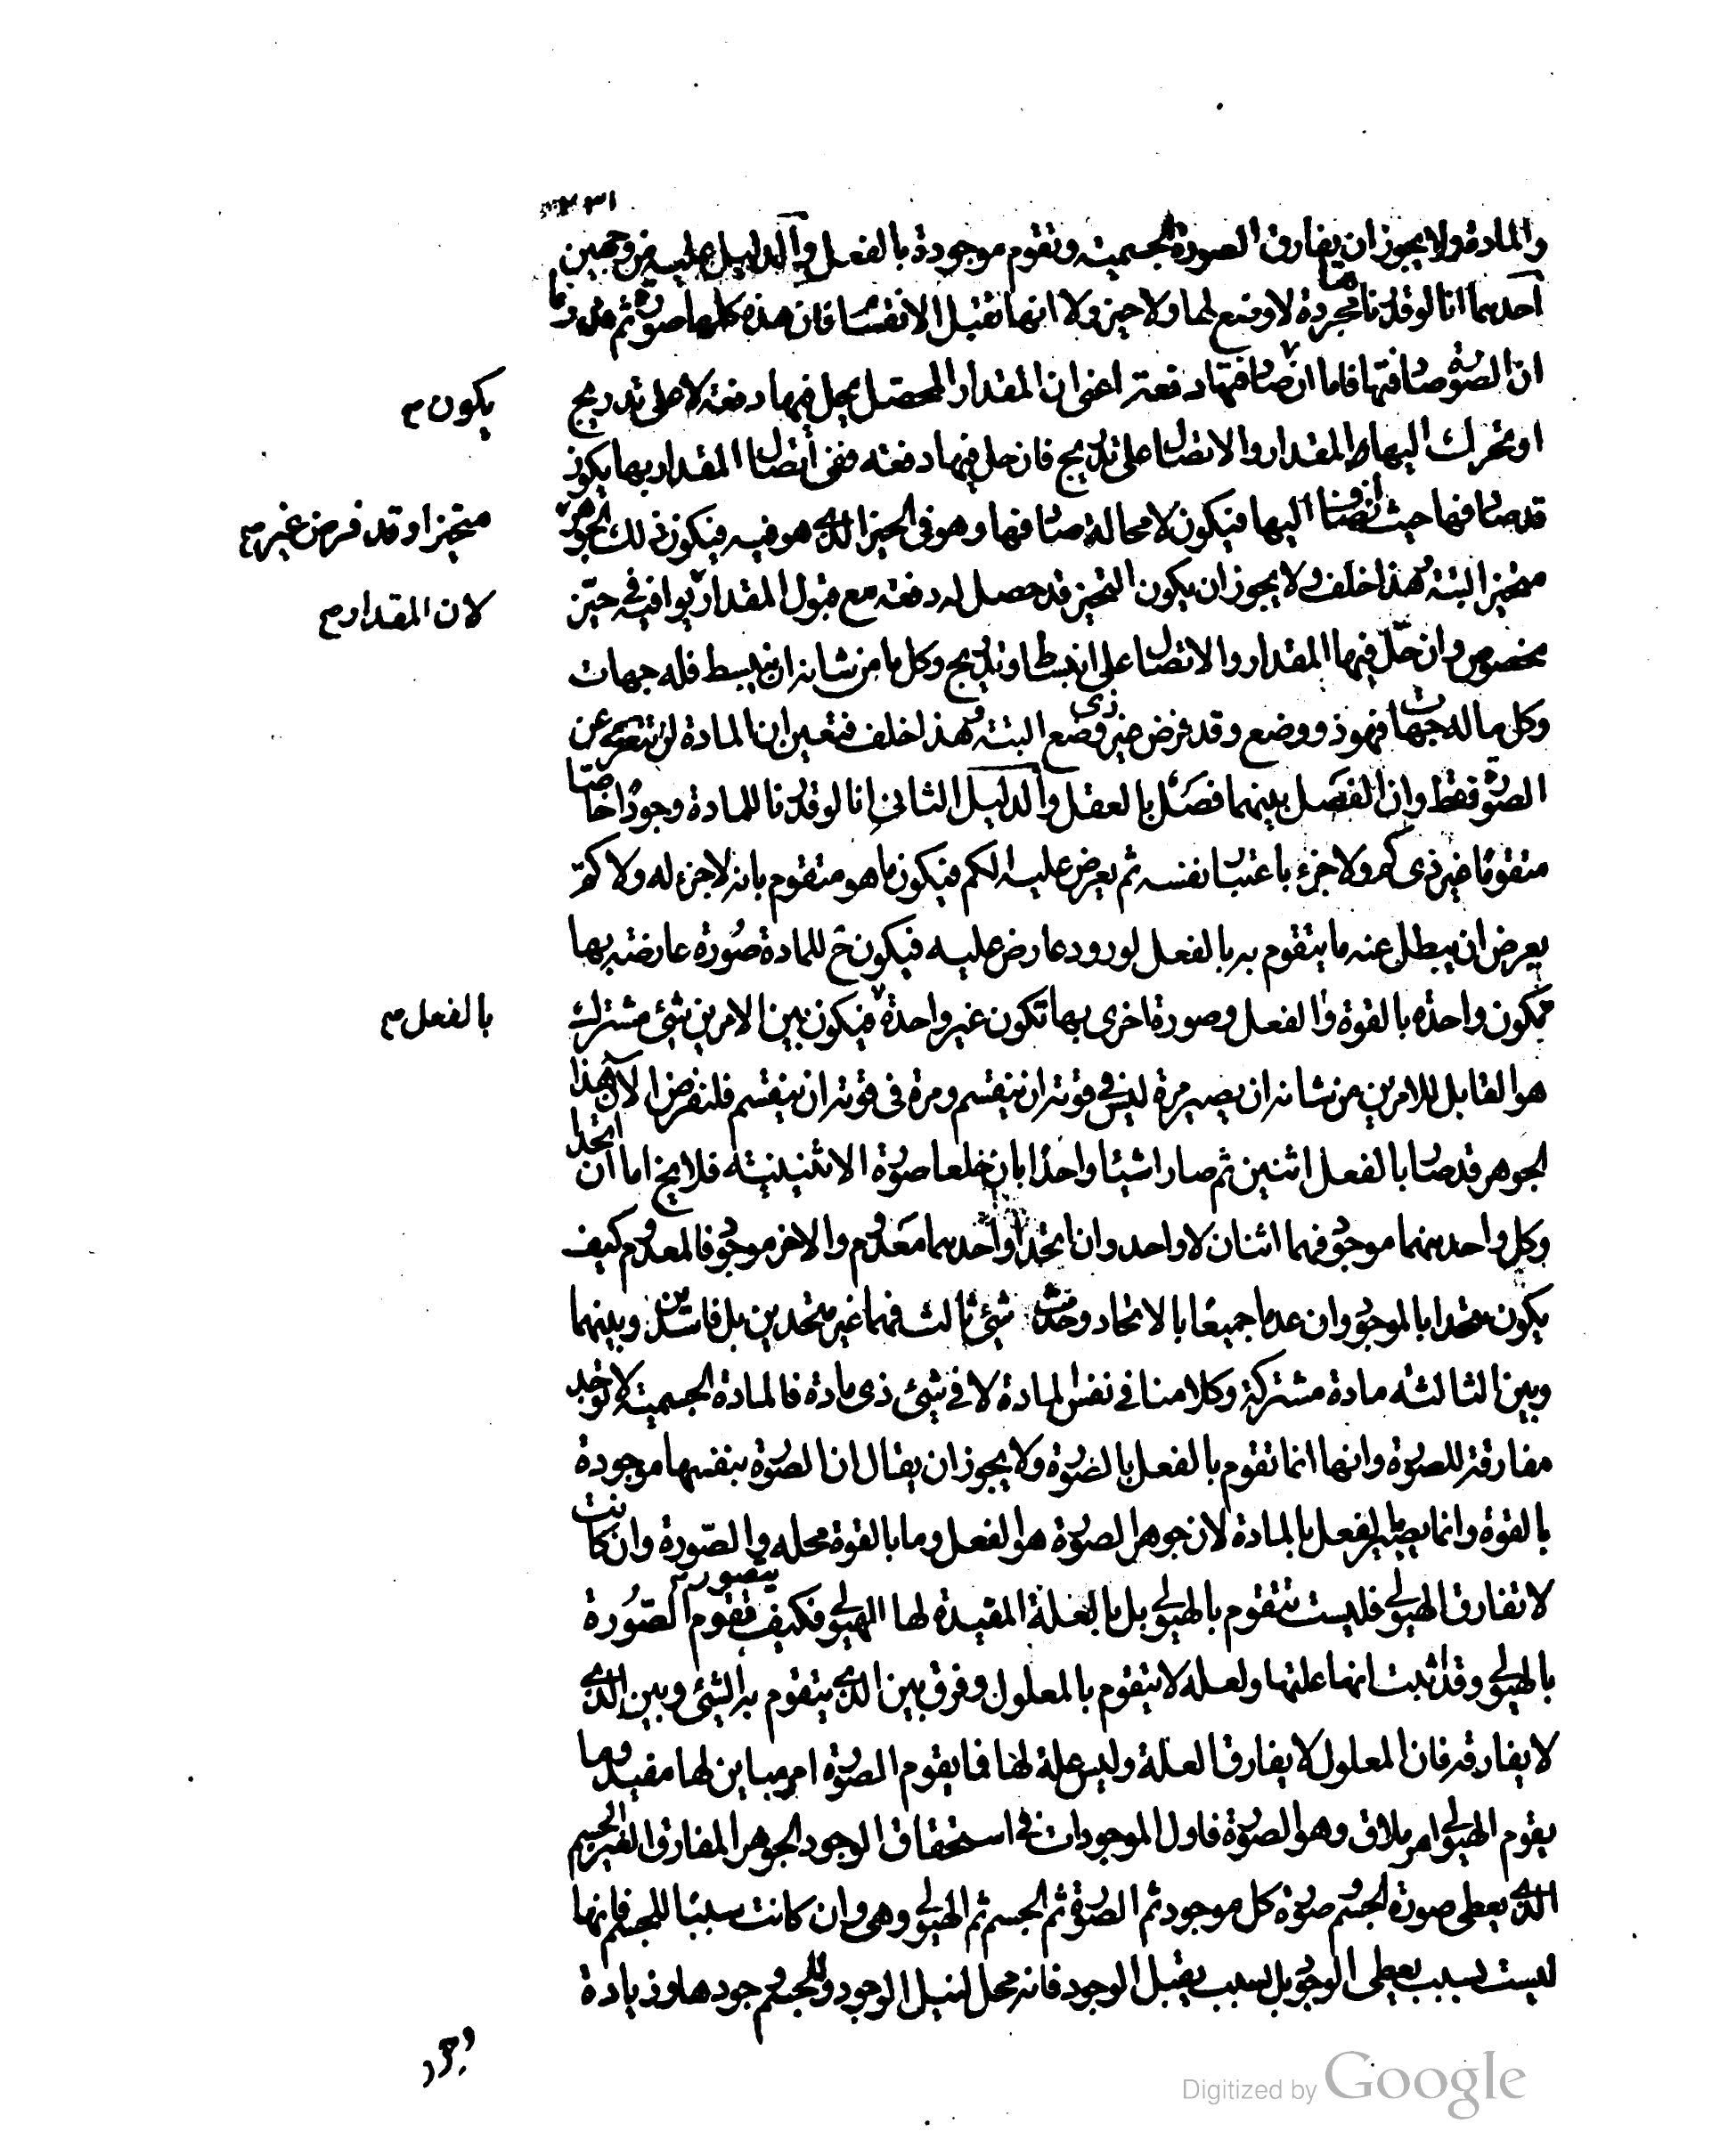 ٢٣١
والمادة ولا يجوز ان يفارق الصورة الجسمية وتقوم موجودة بالفعل والدليل عليه من وجهين
احدهما انا لو قدرناها مجردة لا وضع لها ولا حيز ولا انها تقبل الانقسام فان هذه كلها صورة ثم قدرنا
ان الصورة صادفتها فاما ان صادفتها دفعة اعنى ان المقدار المحصل يحل فيها دفعة لا على تدريج
يكون
او تحرك اليها المقدار والاتصال على تدريج فان حل فيها دفعة ففى اتصال المقدار بها يكون
قد صادفها حيث انضاف اليها فيكون لا محالة صادفها وهو فى الحيز الذى هو فيه فيكون ذلك الجوهر
متحيزا وقد فرض غير
متحيز البتة وهذا خلف ولا يجوز ان يكون التحيز قد حصل له دفعة مع قبول المقدار يوافيه فى حيز
لان المقدار
مخصوص وان حل فيها المقدار والاتصال على انبساط وتدريج وكل ما من شانه ان ينبسط فله جهات
وكل ما له جهات فهو ذو وضع وقد فرض غير ذى وضع البتة وهذا خلف فتعين ان المادة لن تتعرى عن
الصورة فقط وان الفصل بينهما فصل بالعقل والدليل الثانى انا لو قدرنا للمادة وجودا خاصا
متقوما غير ذى كم ولا جزء باعتبار نفسه ثم يعرض عليه الكم فيكون ما هو متقوم بانه لا جزء له ولا كم
يعرض ان يبطل عنه ما يتقوم به بالفعل لورود عارض عليه فيكون ح للمادة صورة عارضة بها
تكون واحدة بالقوة والفعل وصورة اخرى بها تكون غير واحدة فيكون بين الامرين شئ مشترك
بالفعل
هو القابل للامرين من شانه ان يصير مرة ليس فى قوته ان ينقسم ومرة فى قوته ان ينقسم فلنفرض الان هذا
الجوهر قد صار بالفعل اثنين ثم صارا شيئا واحدا بان خلعا صورة الاثنينية فلا يخ اما ان اتحدا
وكل واحد منهما موجود فهما اثنان لا واحد وان اتحدا واحدهما معدوم والاخر موجود فالمعدوم كيف
يكون متحدا بالموجود وان عدما جميعا بالاتحاد وحدث شئ ثالث فهما غير متحدين بل فاسدين وبينهما
وبين الثالث مادة مشتركة وكلامنا فى نفس المادة لا فى شئ ذى مادة فالمادة الجسمية لا توجد
مفارقة للصورة وانها انما تقوم بالفعل بالصورة ولا يجوز ان يقال ان الصورة بنفسها موجودة
بالقوة وانما يصير بالفعل بالمادة لان جوهر الصورة هو الفعل وما بالقوة محله والصورة وان كانت
لا تفارق الهيولى فليست تتقوم بالهيولى بل بالعلة المفيدة لها الهيولى فكيف يتصور تقوم الصورة
بالهيولى وقد اثبت انها علتها والعلة لا يتقوم بالمعلول وفرق بين الذى يتقوم به الشئ وبين الذى
لا يفارقه فان المعلول لا يفارق العلة وليس علة لها فما يقوم الصورة امر مباين لها مفيد وما
يقوم الهيولى امر ملاق وهو الصورة فاول الموجودات فى استحقاق الوجود الجوهر المفارق الغير الجسم
الذى يعطى صورة الجسم وصورة كل موجود ثم الصورة ثم الجسم ثم الهيولى وهى وان كانت سببا للجسم فانها
ليست بسبب يعطى الوجود بل بسبب يقبل الوجود فانه محل لنيل الوجود وللجسم وجودها وزيادة
وجود
Digitized by Google